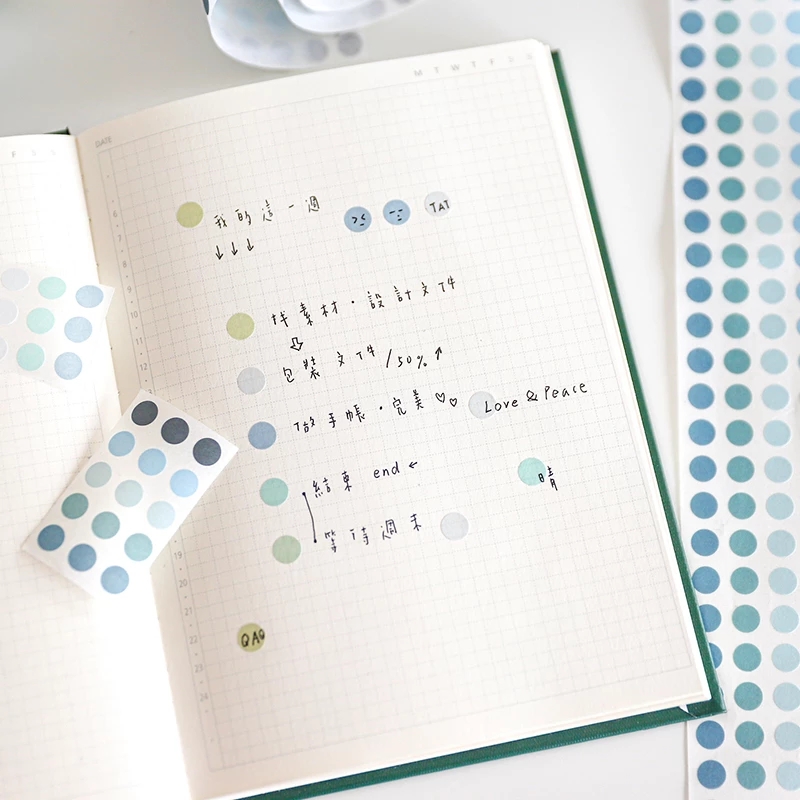 M T W T F S S
DATE
我的這一週 TAT
↓↓↓
找素材・設計文件
⇩
包裝文件/50%↑
做手帳・完美♡♡ Love & Peace
結束 end ←
晴
等待週末
QAQ
6
7
8
9
10
11
12
13
19
20
21
22
23
24